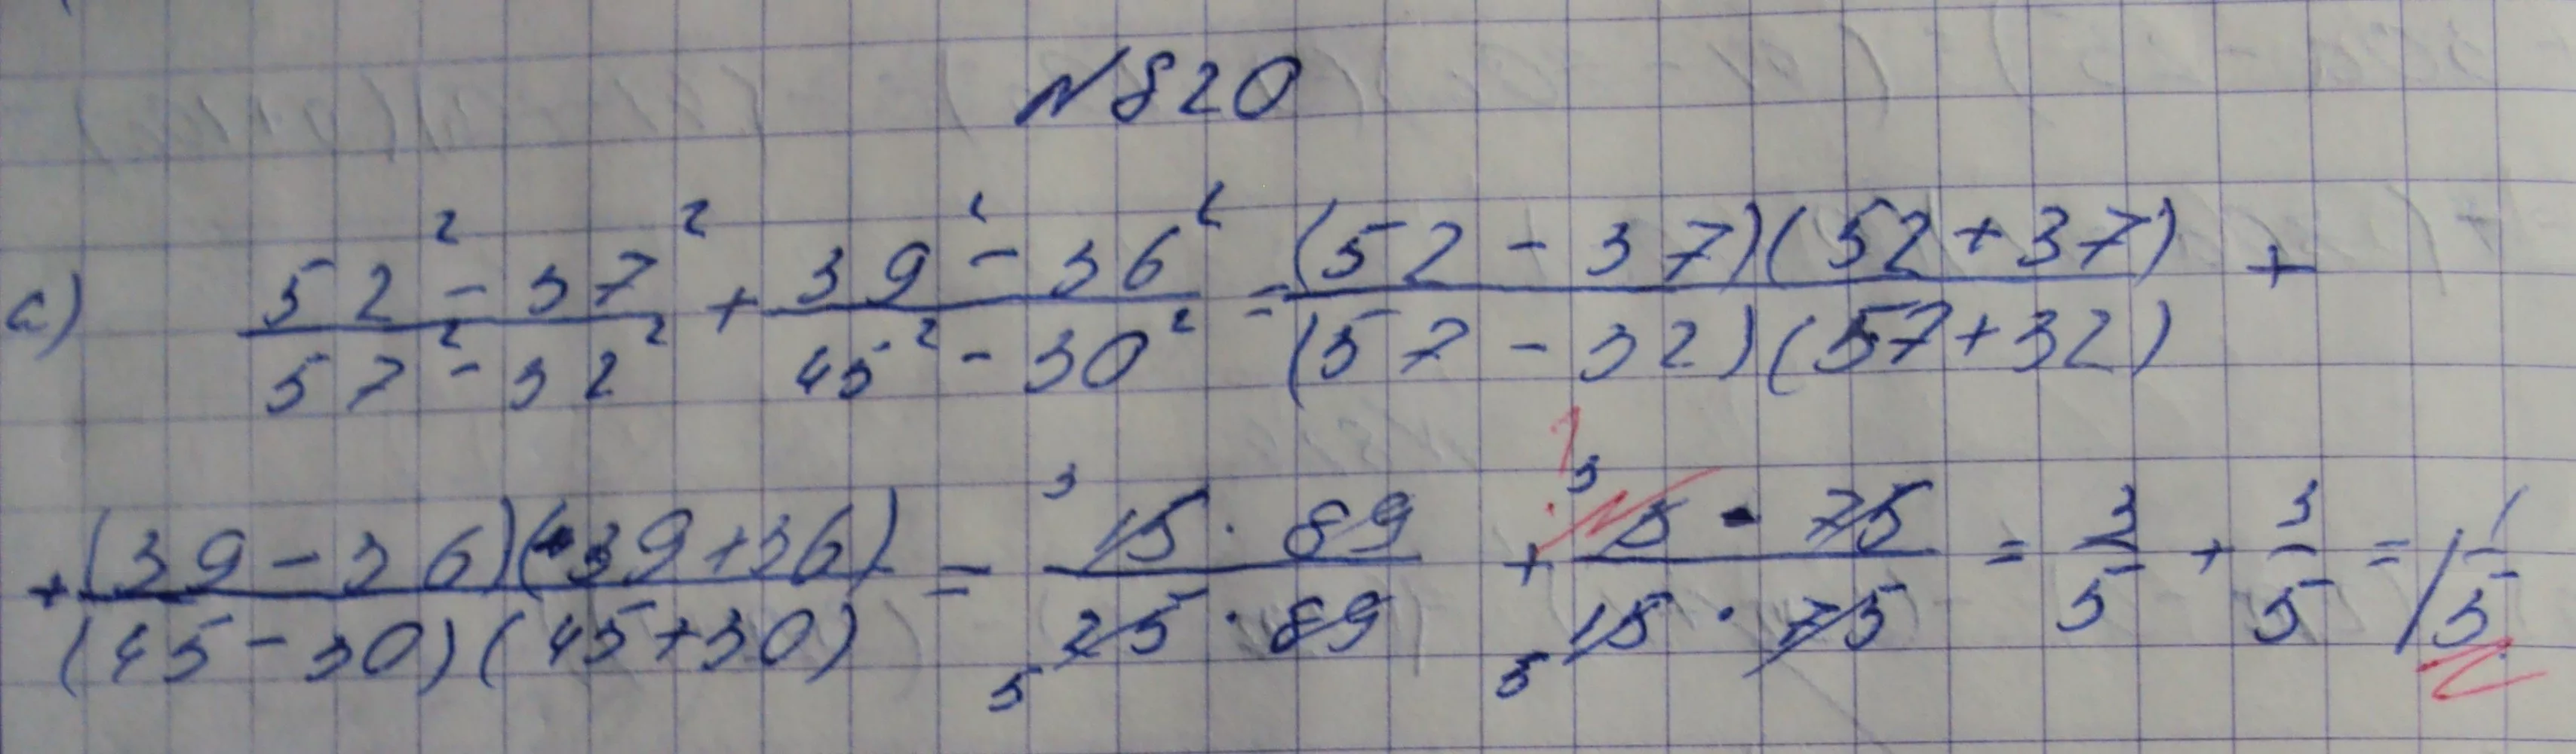 N820
а) (52² - 37²)/(57² - 32²) + (39² - 36²)/(45² - 30²) = (52 - 37)(52 + 37)/(57 - 32)(57 + 32) +
+ (39 - 36)(39 + 36)/(45 - 30)(45 + 30) = 15 · 89/25 · 89 + 3 · 75/15 · 75 = 3/5 + 3/5 = 1 1/5